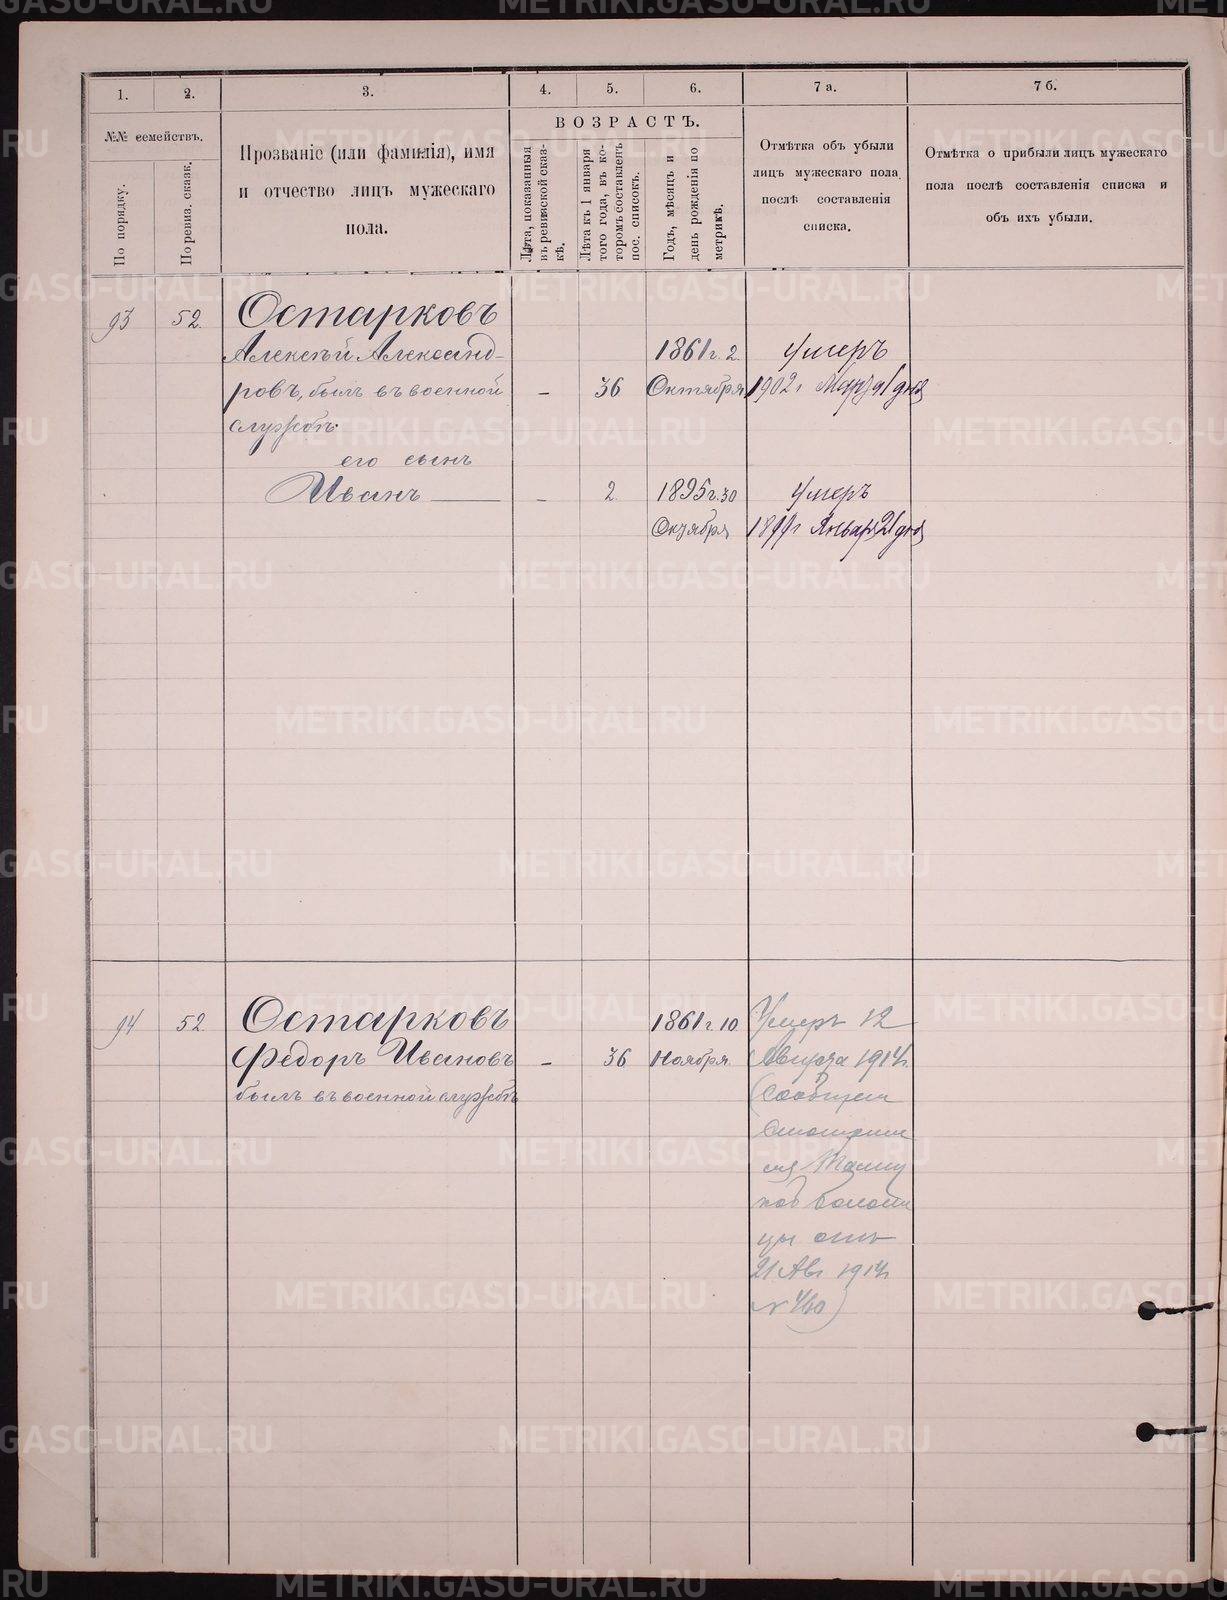 1. 2. 3. 4. 5. 6. 7 а. 7 б.
№№ семействъ.
По порядку.
По ревиз. сказк.
Прозваніе (или фамилія), имя
и отчество лицъ мужескаго
пола.
ВОЗРАСТЪ.
Лѣта, показанныя
въ ревизской сказ-
кѣ.
Лѣта къ 1 января
того года, въ ко-
торомъ составленъ
пос. списокъ.
Годъ, мѣсяцъ и
день рожденія по
метрикѣ.
Отмѣтка объ убыли
лицъ мужескаго пола
послѣ составленія
списка.
Отмѣтка о прибыли лицъ мужескаго
пола послѣ составленія списка и
объ ихъ убыли.
93 52. Остарковъ
Алексѣй Александ- 1861 г. 2. умеръ
ровъ, былъ въ военной – 36 Октября 1902 г Марта 1 дня
службѣ.
его сынъ
Иванъ – 2. 1895 г. 30 умеръ
Октября 1899 г Января 21 дня
94 52 Остарковъ 1861 г 10 Умеръ 12
Федоръ Ивановъ – 36 Ноября. Августа 1914 г.
былъ въ военной службѣ (Сообщен
Смотрит
21 Авг 1914 г
METRIKI.GASO-URAL.RU